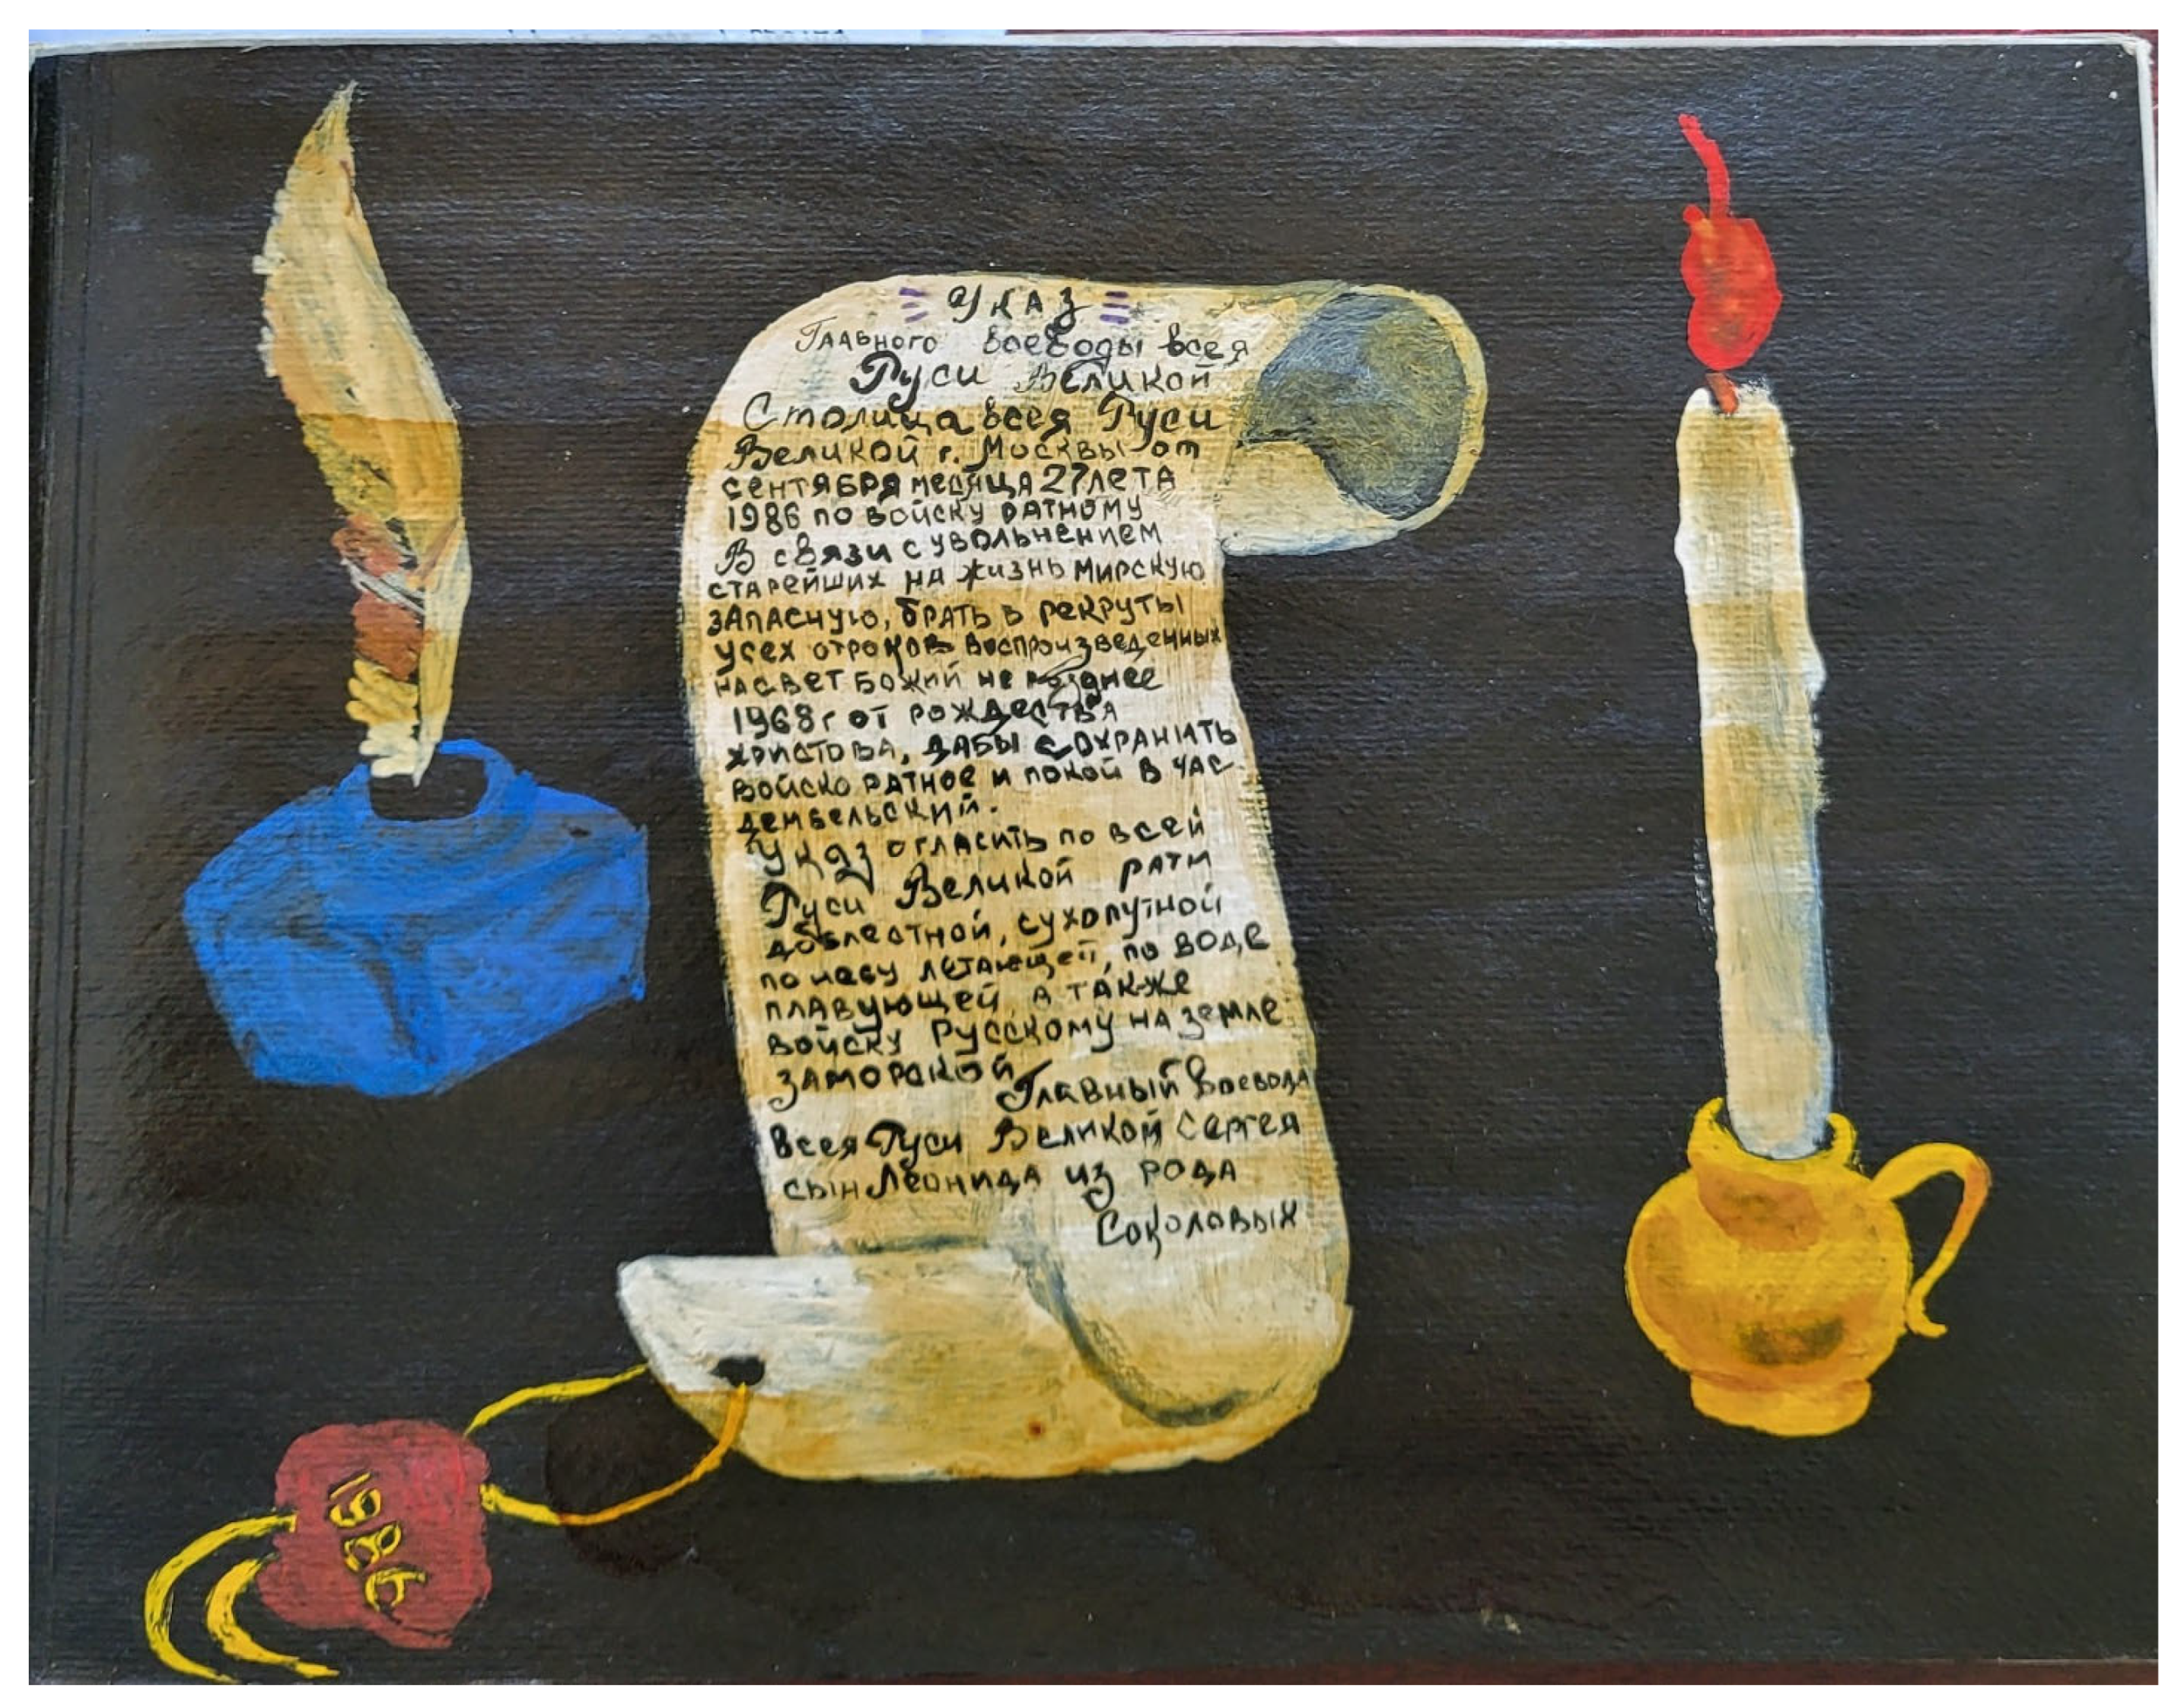 Указ
Главного воеводы всея
Руси Великой
Столица всея Руси
Великой г. Москвы от
сентября месяца 27 лета
1986 по войску ратному
В связи с увольнением
старейших на жизнь мирскую
запасную, брать в рекруты
усех отроков воспроизведенных
на свет божий не позднее
1968г от рождества
христова, дабы сохранить
войско ратное и покой в час
дембельский.
Указ огласить по всей
Руси Великой рати
доблестной, сухопутной
по небу летающей, по воде
плавующей а также
войску Русскому на земле
заморской
Главный воевода
всея Руси Великой Сергея
сын Леонида из рода
Соколовых
1986